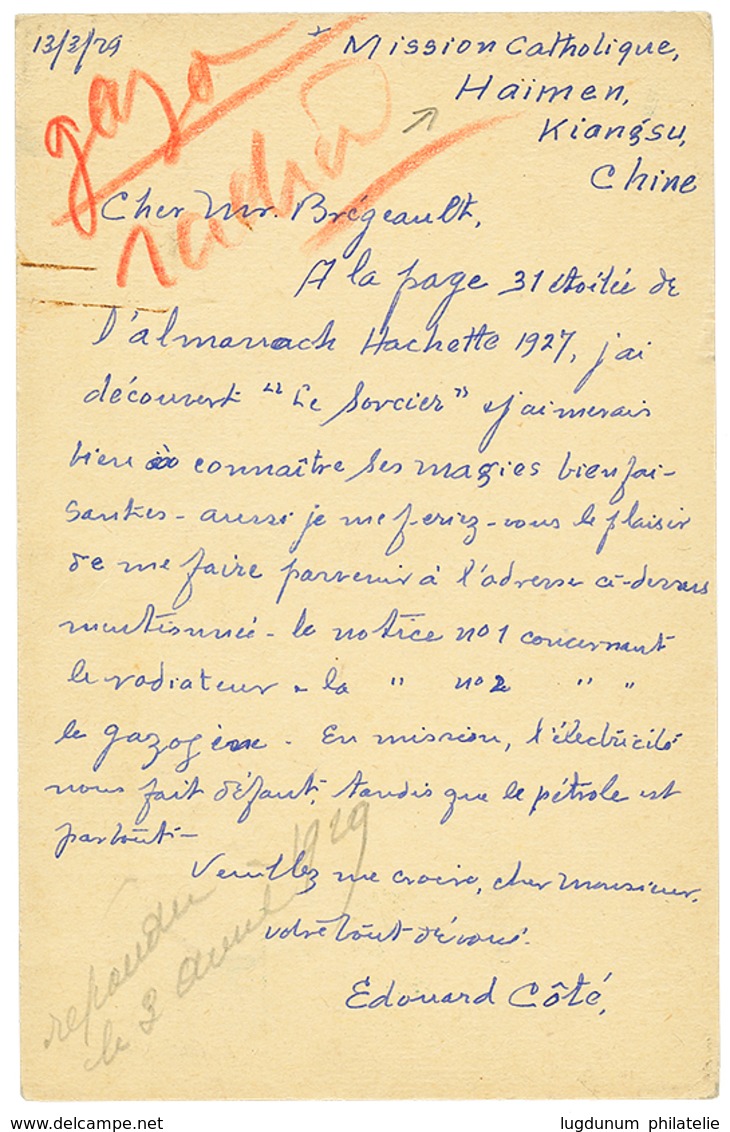 13/3/29
Mission Catholique,
Haïmen,
Kiangsu,
Chine
gazo
radia
Cher Mr. Brégeault,
A la page 31 étoilée de
l'almanach Hachette 1927, j'ai
découvert "Le Sorcier" & j'aimerais
bien connaître ses magies bienfai-
santes - aussi je me feriez-vous le plaisir
de me faire parvenir à l'adresse ci-dessus
mentionnée - la notice no 1 concernant
le radiateur - la " no 2 " "
le gazogène. En mission, l'électricité
nous fait défaut, tandis que le pétrole est
partout -
Veuillez me croire, cher Monsieur,
votre tout dévoué.
Edouard Côté,
répondu
le 3 avril 1929
lugdunum philatelie